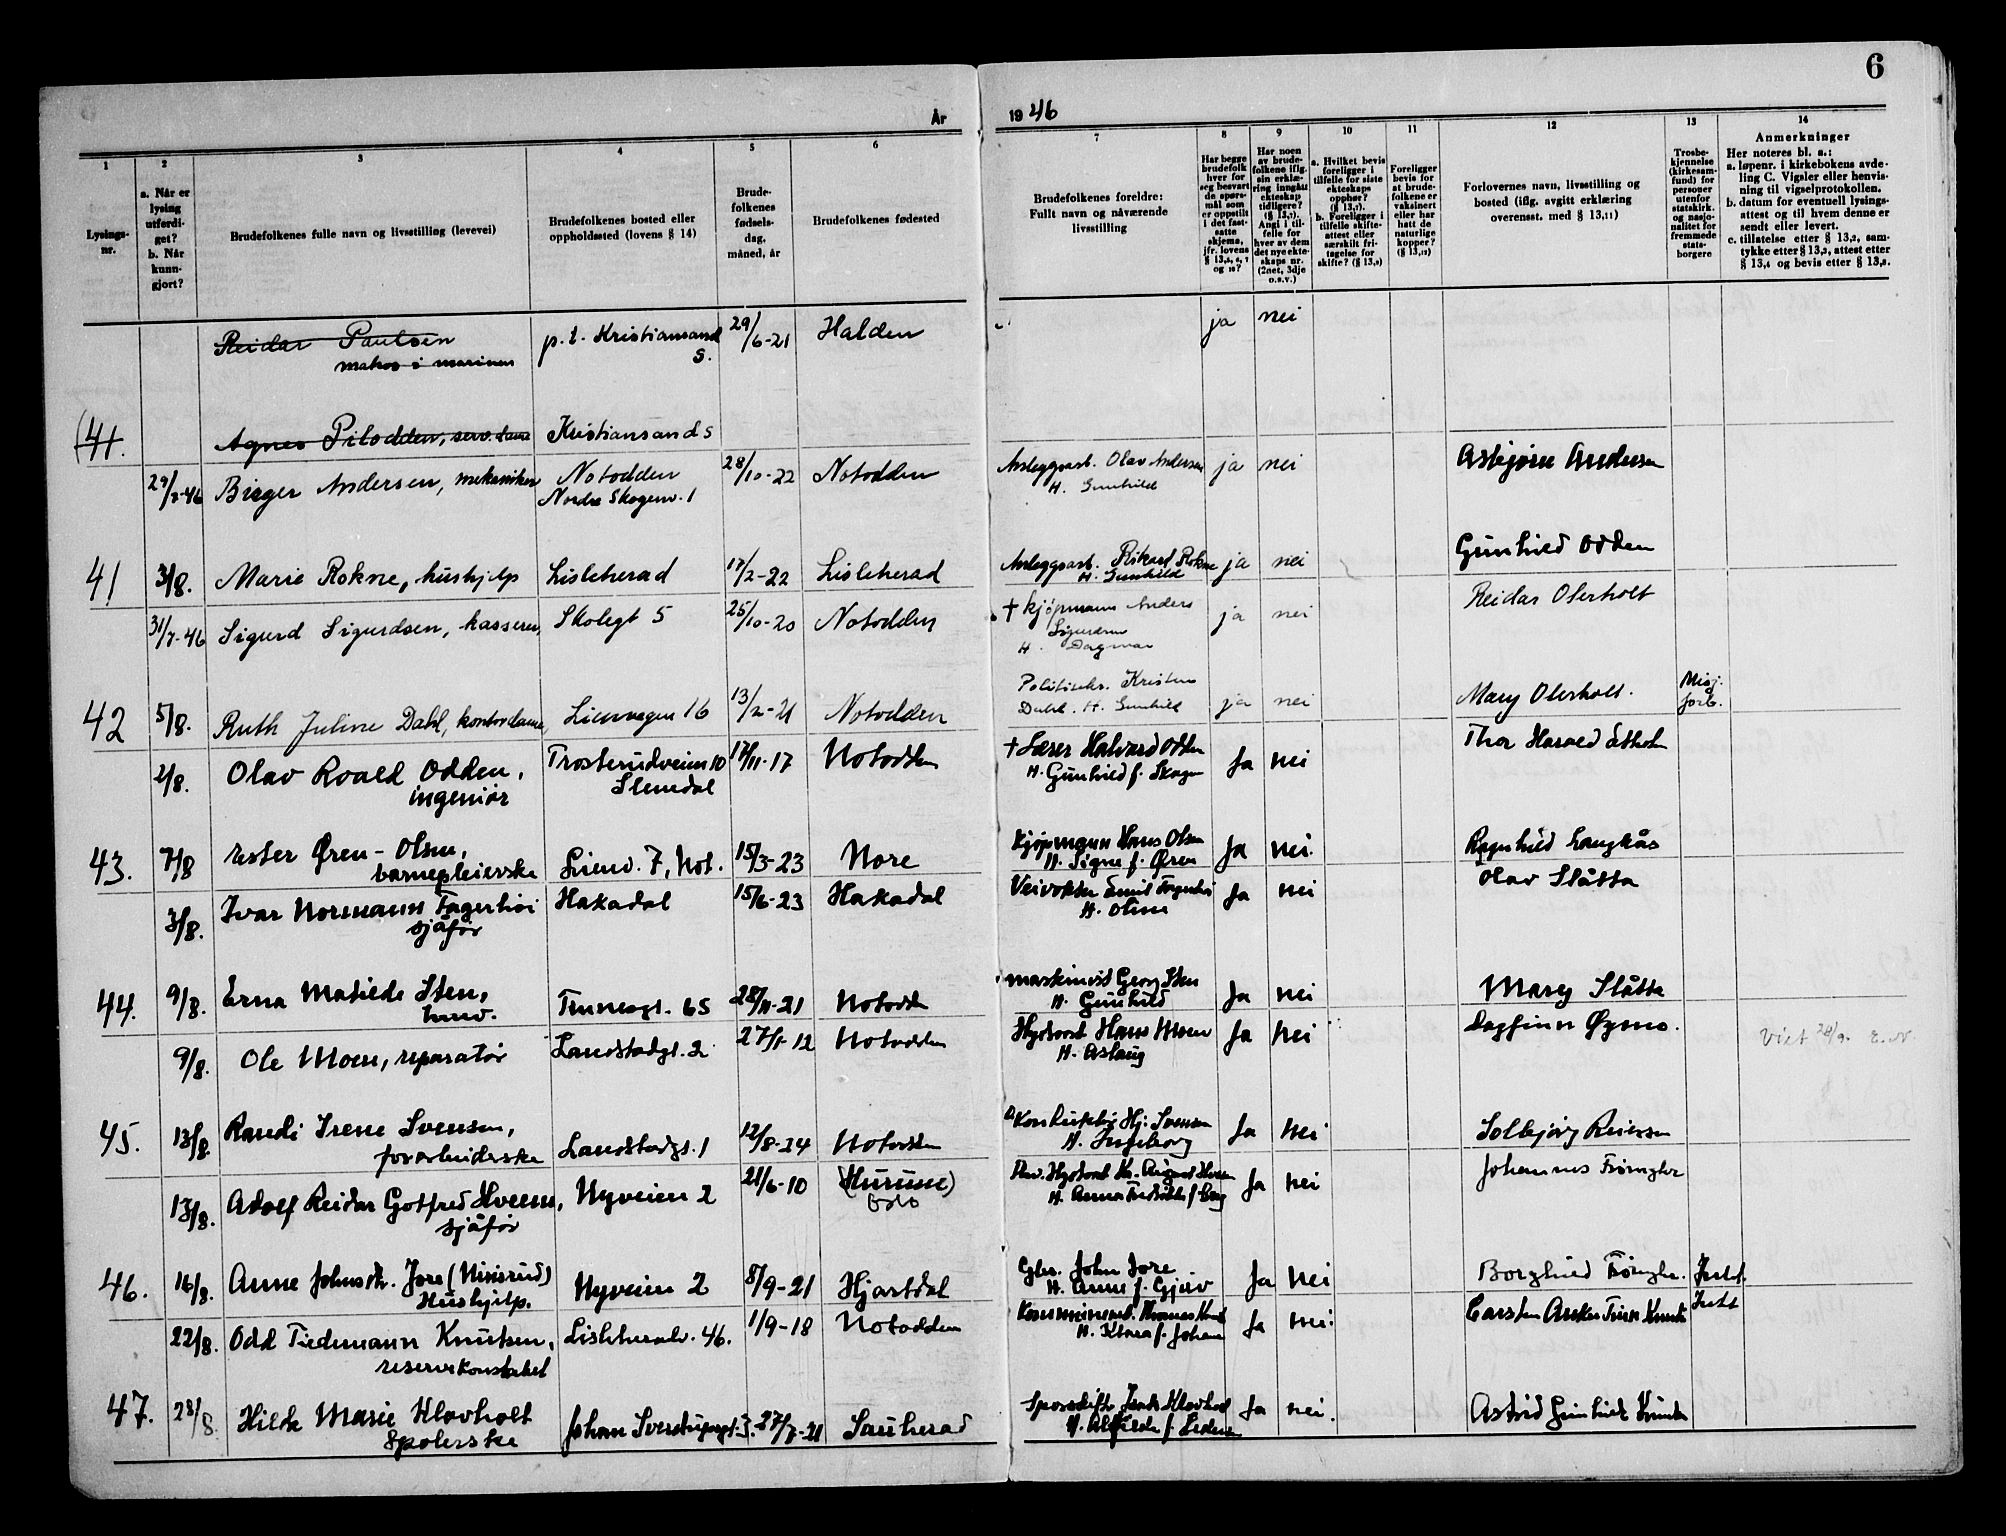 6
År
19 46
1
2
3
4
5
6
7
8
9
10
11
12
13
14
Lysings-
nr.
a. Når er
lysing
utferdi-
get?
b. Når
kunn-
gjort?
Brudefolkenes fulle navn og livsstilling (levevei)
Brudefolkenes bosted eller
oppholdssted (lovens § 14)
Brude-
folkenes
fødsels-
dag,
måned, år
Brudefolkenes fødested
Brudefolkenes foreldre:
Fullt navn og nåværende
livsstilling
Har begge
brudefolk
hver for
seg besvart
de spørs-
mål som
er oppstilt
i det fast-
satte
skjema,
jfr. lovens
Har noen
av brude-
folkene iflg.
sin erklæ-
ring inngått
ekteskap
tidligere?
(§ 13,7).
Angi i til-
felle for
hver av dem
det nye ekte-
skaps nr.
(2net, 3dje
o.s.v.)
a. Hvilket bevis
foreligger i
tilfelle for siste
ekteskaps
opphør?
(§ 13,7).
b. Foreligger i
tilfelle skifte-
attest eller
særskilt fri-
tagelse for
skifte? (§ 13,8)
Foreligger
bevis for
at brude-
folkene er
vaksinert
eller har
hatt de
naturlige
kopper?
Forlovernes navn, livsstilling og
bosted (iflg. avgitt erklæring
overensst. med § 13,11)
Trosbe-
kjennelse
(kirkesam-
fund) for
personer
utenfor
statskirk.
og nasjo-
nalitet for
fremmede
stats-
borgere
Anmerkninger
Her noteres bl. a.:
a. løpenr. i kirkebokens avde-
ling C. Vigsler eller henvis-
ning til vigselprotokollen.
b. datum for eventuell lysings-
attest og til hvem denne er
sendt eller levert.
c. tillatelse etter § 13,2, sam-
tykke etter § 13,3, attest etter
§ 13,4 og bevis etter § 13,8.
Reidar Paulsen
matros i marinen
p. t. Kristiansand
S.
29/6-21
Halden
ja
nei
(41.
Agnes Pilodden, serv.dame
Kristiansand S
29/7-46
Birger Andersen, mekaniker
Notodden
Nordre Skogenv. 1
28/10-22
Notodden
Anleggsarb. Olav Andersen
H. Gunhild
ja
nei
Asbjørn Andersen
41
3/8.
Marie Rokne, hushjelp
Lisleherad
17/2-22
Lisleherad
Anleggsarb. Rikard Rokne
H. Gunhild
ja
nei
Gunhild Odden
31/7-46
Sigurd Sigurdsen, kasserer,
Skolegt 5
25/10-20
Notodden
† kjøpmann Anders
Sigurdsen
H. Dagmar
ja
nei
Reidar Olerholt
42
5/8.
Ruth Juline Dahl, kontordame,
Lienvegen 16
13/2-21
Notodden
Kristen
Dahl. H. Gunhild
ja
nei
Mary Olerholt.
Misj.
forb.
2/8.
Olav Roald Odden,
ingeniør
Trosterudveien 10
Slemdal
17/11-17
Notodden
† Lærer Halvard Odden
H. Gunhild f. Skogen
Ja
nei
Thor Harald
43.
7/8
Ester Øren-Olsen,
barnepleierske
Lienv. 7, Not.
15/3-23
Nore
Kjøpmann Hans Olsen
H. Signe f. Øren
Ja
nei.
Ragnhild Langkås
3/8.
Ivar Normann Fagerhøi
sjåfør
Hakadal
15/6-23
Hakadal
Veivokter Emil Fagerhøi
H. Oline
Ja
nei
Olav Slåtta
44.
9/8.
Erna Matilde Sten,
Tinnesgt. 65
28/11-21
Notodden
Maskinist Georg Sten
H. Gunhild
Ja
nei
Mary Slåtta
9/8.
Ole Moen, reparatør
Landstadgt. 2
27/1-12
Notodden
Hydroarb Hans Moen
H. Aslaug
Ja
nei
Dagfinn
Viet 28/9. E. N.
45.
13/8
Randi Irene Svensen,
Landstadgt. 1
12/8-24
Notodden
Hj. Svensen
H. Ingeborg
Ja
nei
Solbjørg
13/8.
Adolf Reidar Gotfred Hveem,
sjåfør
Nyveien 2
21/6-10
(Hurum)
Oslo
Ja
nei
Johannes
46.
16/8.
Anne Johnsdtr. Jore (Nisisrud)
Hushjelp.
Nyveien 2
8/9-21
Hjartdal
Gbr. John Jore
H. Anne f. Gjuv
Ja
nei
Borghild
22/8.
Odd Tiedemann Knutsen,
reservekonstabel
Lisleheradv. 46.
1/9-18
Notodden
H. Klara f. Johan
Ja
nei.
Carsten Anker
47.
28/8
Hilda Marie Klovholt
Spolerske
Johan Sverdrupsgt. 3.
27/7-21
Sauherad
Ja
nei.
Astrid Gunhild